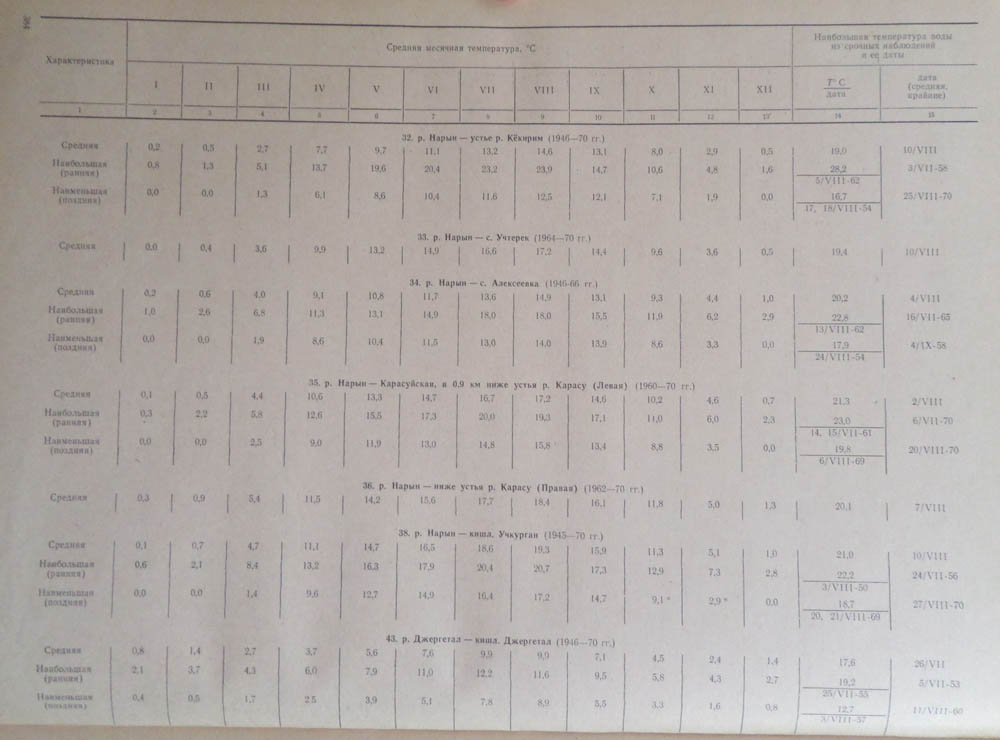 384
Характеристика
Средняя месячная температура, °С
Наибольшая температура воды
из срочных наблюдений
и ее даты
I II III IV V VI VII VIII IX X XI XII
T° C
дата
дата
(средняя,
крайние)
1 2 3 4 5 6 7 8 9 10 11 12 13 14 15
32. р. Нарын — устье р. Кёкирим (1946—70 гг.)
Средняя 0,2 0,5 2,7 7,7 9,7 11,1 13,2 14,6 13,1 8,0 2,9 0,5 19,0 10/VIII
Наибольшая 0,8 1,3 5,1 13,7 19,6 20,4 23,2 23,9 14,7 10,6 4,8 1,6 28,2 3/VII-58
(ранняя) 5/VIII-62
Наименьшая 0,0 0,0 1,3 6,1 8,6 10,4 11,6 12,5 12,1 7,1 1,9 0,0 16,7 25/VIII-70
(поздняя) 17, 18/VIII-54
33. р. Нарын — с. Учтерек (1964—70 гг.)
Средняя 0,0 0,4 3,6 9,9 13,2 14,9 16,6 17,2 14,4 9,6 3,6 0,5 19,4 10/VIII
34. р. Нарын — с. Алексеевка (1946-66 гг.)
Средняя 0,2 0,6 4,0 9,1 10,8 11,7 13,6 14,9 13,1 9,3 4,4 1,0 20,2 4/VIII
Наибольшая 1,0 2,6 6,8 11,3 13,1 14,9 18,0 18,0 15,5 11,9 6,2 2,9 22,8 16/VII-65
(ранняя) 13/VIII-62
Наименьшая 0,0 0,0 1,9 8,6 10,4 11,5 13,0 14,0 13,9 8,6 3,3 0,0 17,9 4/IX-58
(поздняя) 24/VIII-54
35. р. Нарын — Карасуйская, в 0,9 км ниже устья р. Карасу (Левая) (1960—70 гг.)
Средняя 0,1 0,5 4,4 10,6 13,3 14,7 16,7 17,2 14,6 10,2 4,6 0,7 21,3 2/VIII
Наибольшая 0,3 2,2 5,8 12,6 15,5 17,3 20,0 19,3 17,1 11,0 6,0 2,3 23,0 6/VII-70
(ранняя) 14, 15/VII-61
Наименьшая 0,0 0,0 2,5 9,0 11,9 13,0 14,8 15,8 13,4 8,8 3,5 0,0 19,8 20/VIII-70
(поздняя) 6/VIII-69
36. р. Нарын — ниже устья р. Карасу (Правая) (1962—70 гг.)
Средняя 0,3 0,9 5,4 11,5 14,2 15,6 17,7 18,4 16,1 11,8 5,0 1,3 20,1 7/VIII
38. р. Нарын — кишл. Учкурган (1945—70 гг.)
Средняя 0,1 0,7 4,7 11,1 14,7 16,5 18,6 19,3 15,9 11,3 5,1 1,0 21,0 10/VIII
Наибольшая 0,6 2,1 8,4 13,2 16,3 17,9 20,4 20,7 17,3 12,9 7,3 2,8 22,2 24/VII-56
(ранняя) 3/VIII-50
Наименьшая 0,0 0,0 1,4 9,6 12,7 14,9 16,4 17,2 14,7 9,1 * 2,9 * 0,0 18,7 27/VIII-70
(поздняя) 20, 21/VIII-69
43. р. Джергетал — кишл. Джергетал (1946—70 гг.)
Средняя 0,8 1,4 2,7 3,7 5,6 7,6 9,9 9,9 7,1 4,5 2,4 1,4 17,6 26/VII
Наибольшая 2,1 3,7 4,3 6,0 7,9 11,0 12,2 11,6 9,5 5,8 4,3 2,7 19,2 5/VII-53
(ранняя) 25/VII-55
Наименьшая 0,4 0,5 1,7 2,5 3,9 5,1 7,8 8,9 5,5 3,3 1,6 0,8 12,7 11/VIII-60
(поздняя) 3/VIII-57